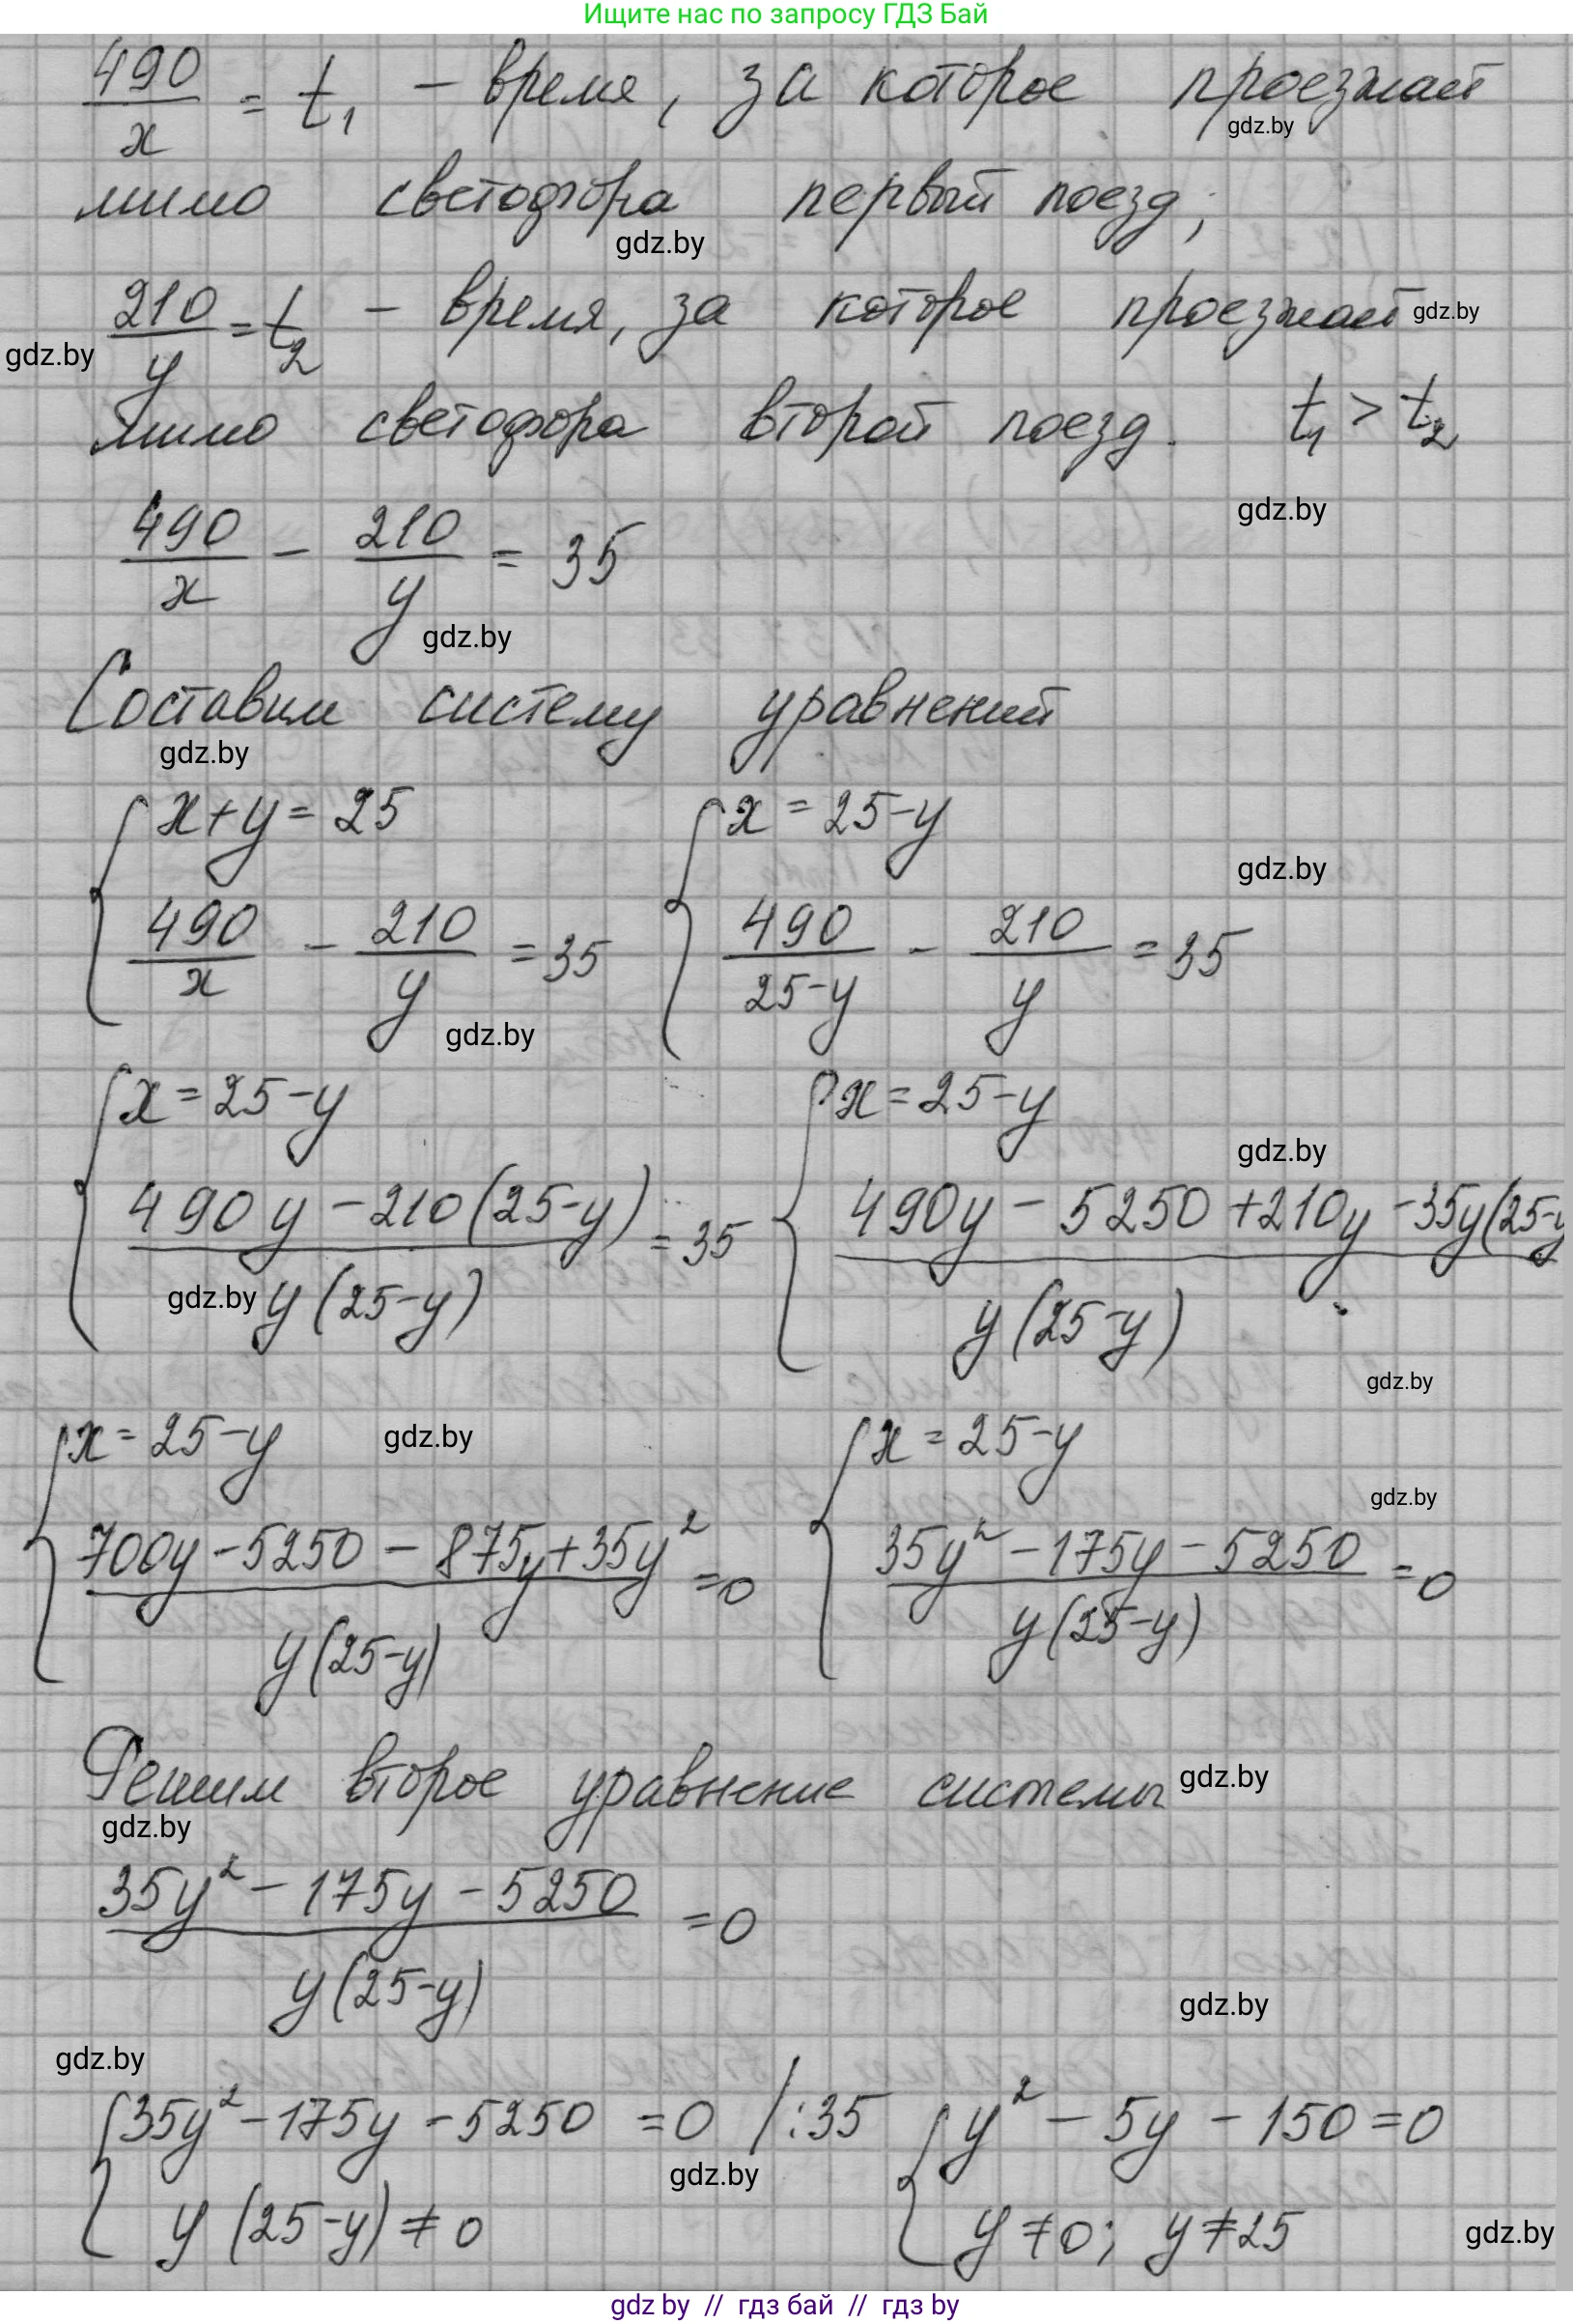 Ищите нас по запросу ГДЗ Бай
490/x = t₁ – время, за которое проезжает
gdz.by
мимо светофора первый поезд;
gdz.by
210/y = t₂ – время, за которое проезжает gdz.by
gdz.by
мимо светофора второй поезд. t₁ > t₂
gdz.by
490/x – 210/y = 35
gdz.by
Составим систему уравнений
gdz.by
{ x+y = 25 { x = 25-y
gdz.by
490/x – 210/y = 35 490/(25-y) – 210/y = 35
gdz.by
{ x = 25-y { x = 25-y
gdz.by
(490y – 210(25-y))/(y(25-y)) = 35 (490y – 5250 + 210y – 35y(25-y/(y(25-y))
gdz.by
gdz.by
{ x = 25-y gdz.by { x = 25-y
gdz.by
(700y – 5250 – 875y + 35y²)/(y(25-y)) = 0 (35y² – 175y – 5250)/(y(25-y)) = 0
Решим второе уравнение системы gdz.by
gdz.by
(35y² – 175y – 5250)/(y(25-y)) = 0
gdz.by
gdz.by
{ 35y² – 175y – 5250 = 0 /:35 { y² – 5y – 150 = 0
gdz.by
y(25-y) ≠ 0 y ≠ 0; y ≠ 25 gdz.by
gdz by // гдз бай // гдз by